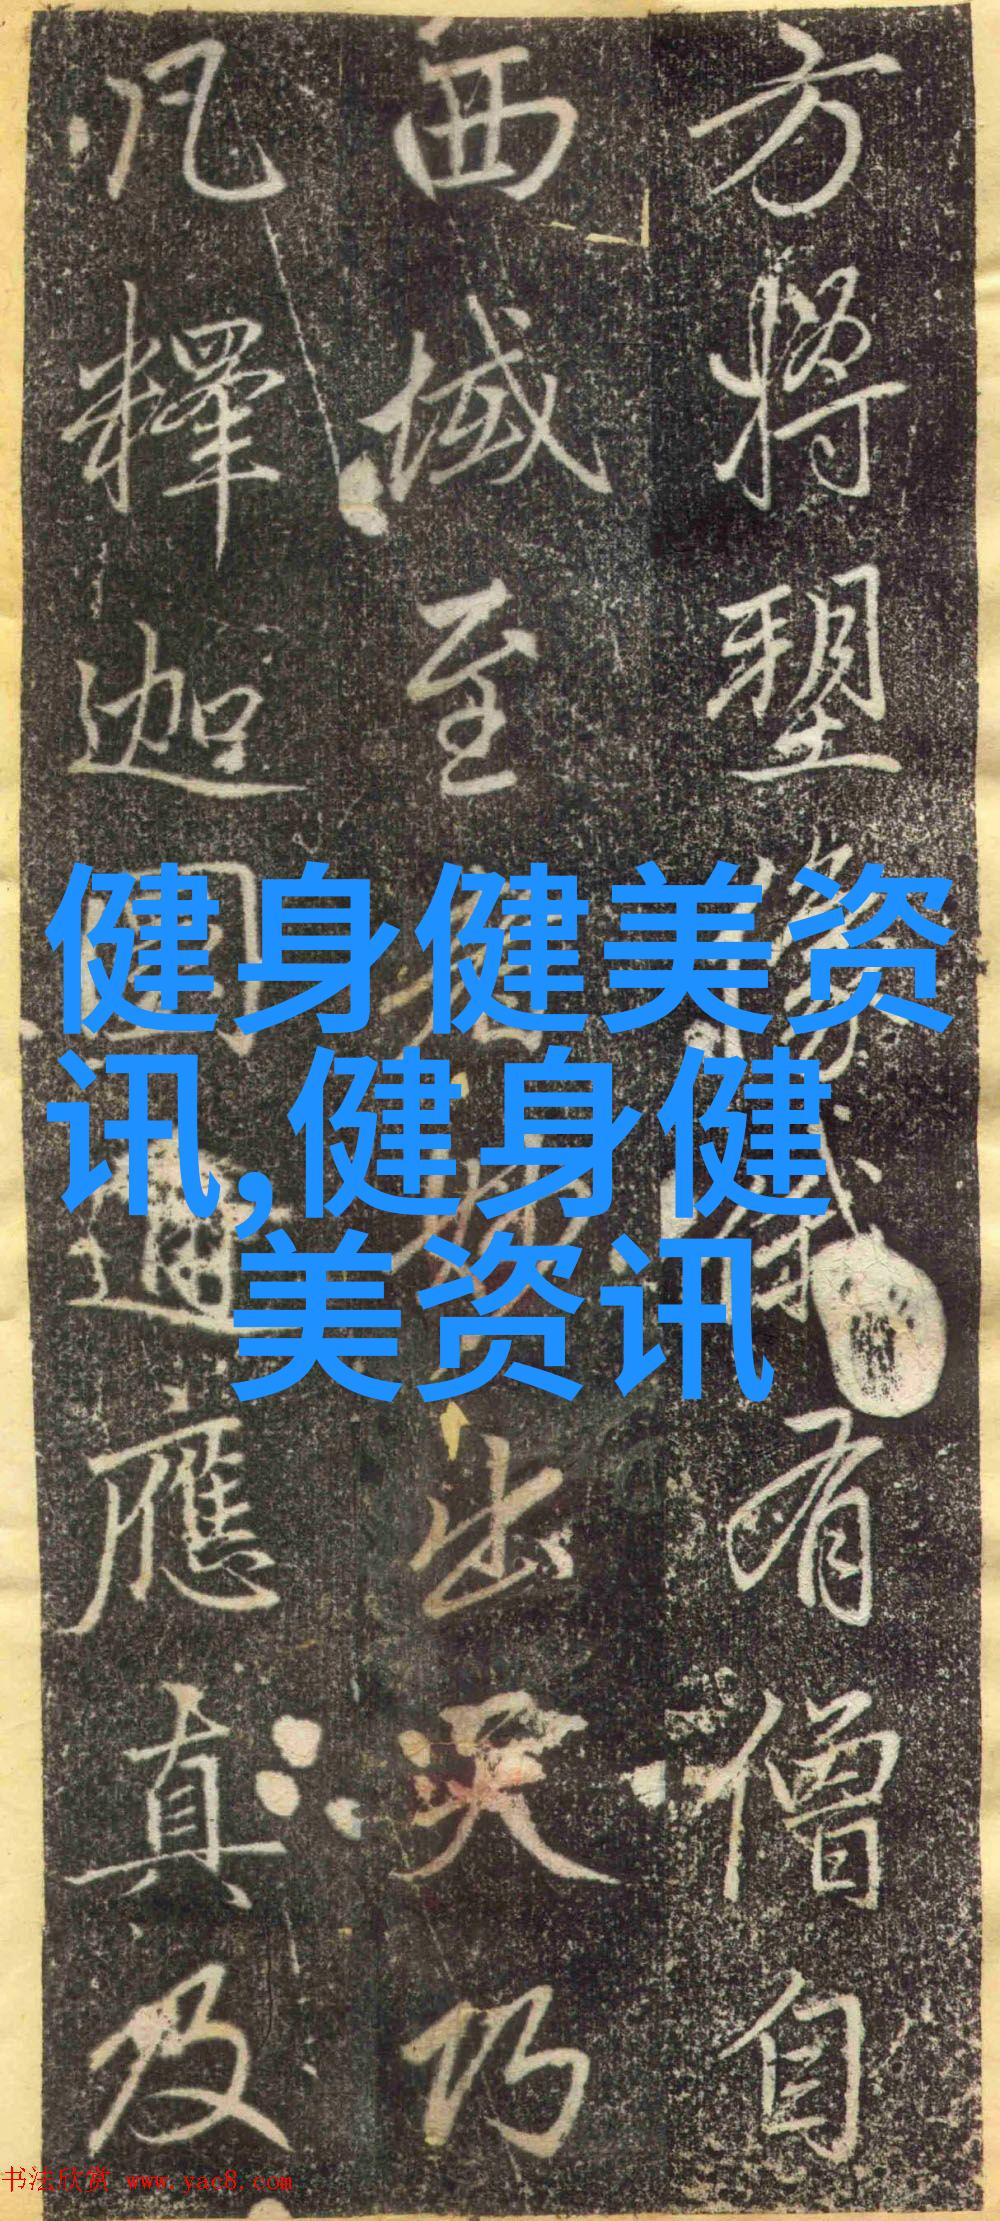 方將塑有僧自
西域至出乃
凡釋迦應真及
健身健美资
讯,健身健
美资讯
书法欣赏 www.yac8.com